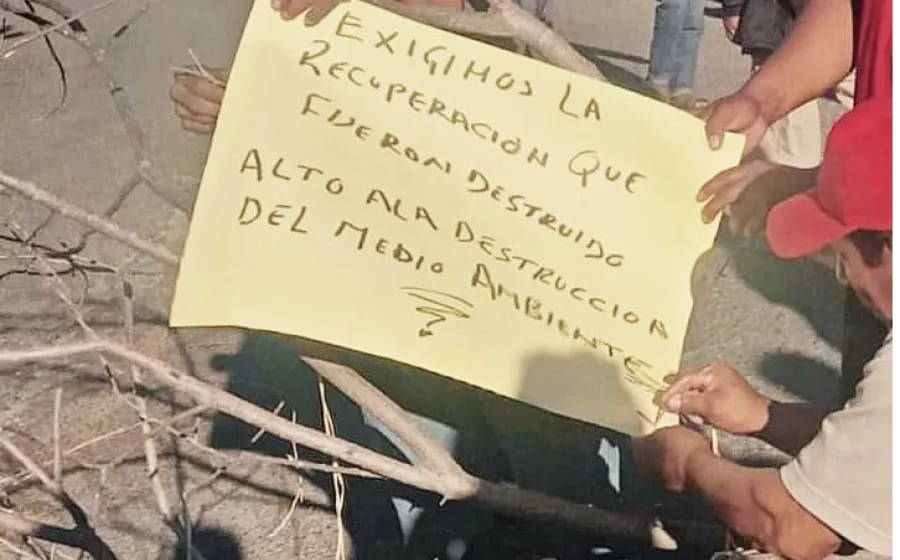 EXIGIMOS LA
RECUPERACIÓN QUE
FUERON DESTRUIDO
ALTO ALA DESTRUCCION
DEL MEDIO AMBIENTE